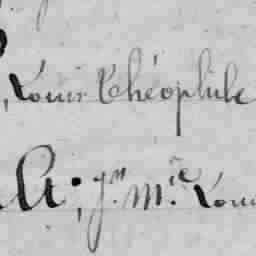 , Louis Théophile
A; Jn. Mie. Loui